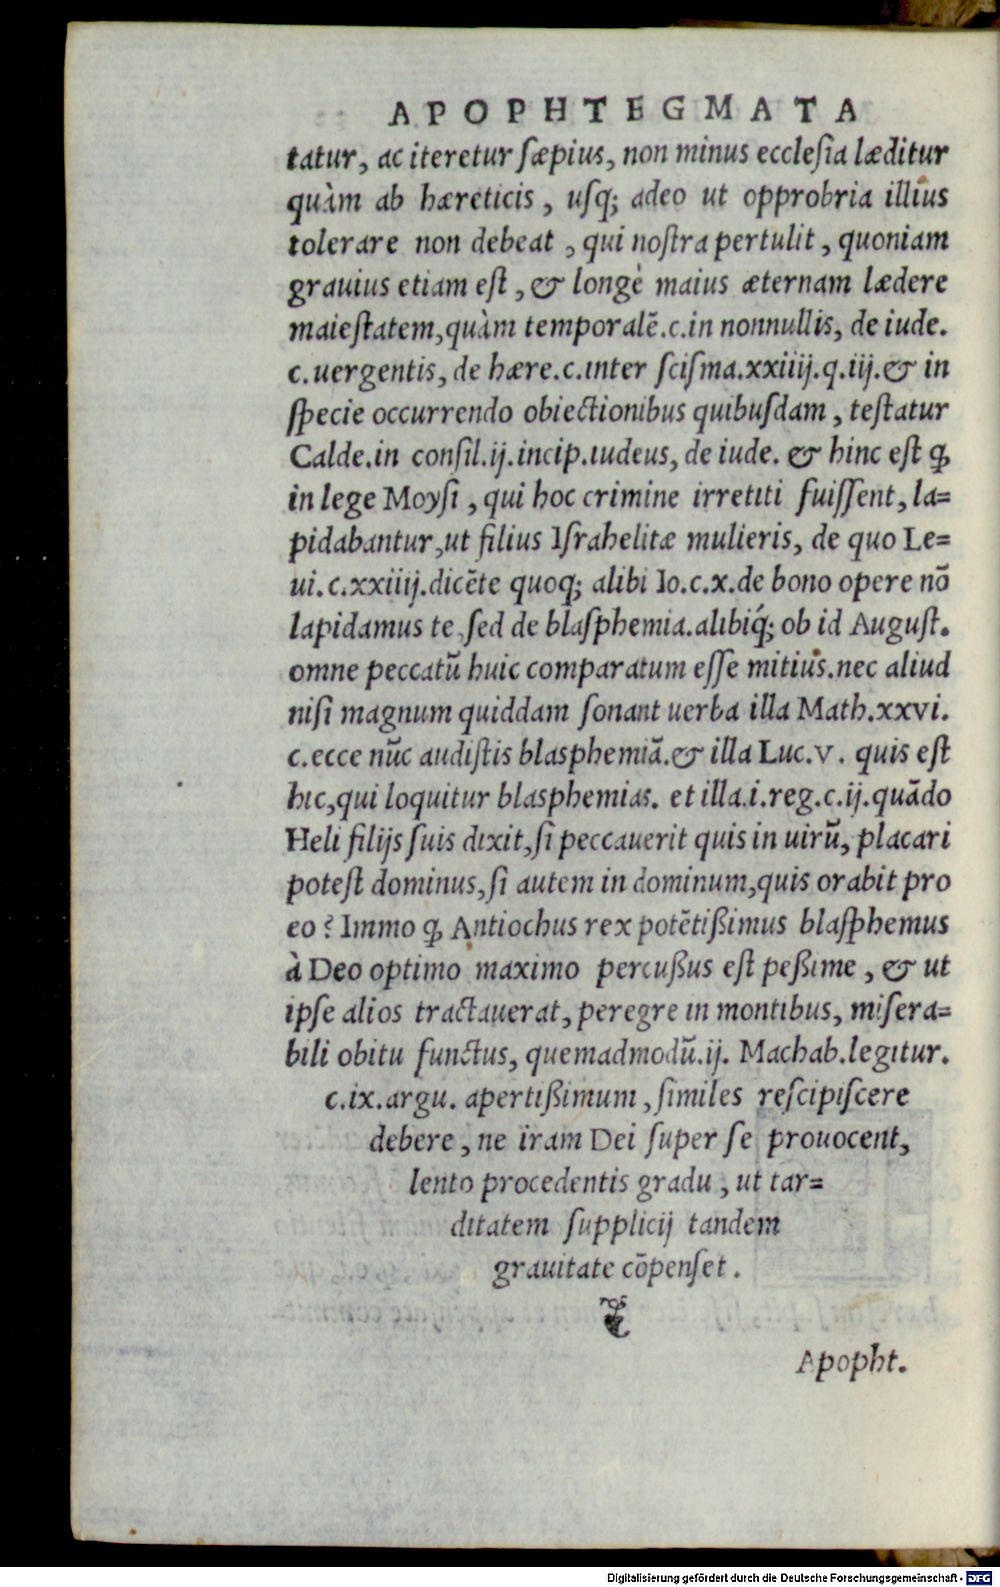 APOPHTEGMATA
tatur, ac iteretur ſæpius, non minus eccleſia læditur
quàm ab hæreticis, uſq; adeo ut opprobria illius
tolerare non debeat, qui noſtra pertulit, quoniam
grauius etiam eſt, & longè maius æternam lædere
maieſtatem, quàm temporalē.c.in nonnullis, de iude.
c.uergentis, de hære.c.inter ſciſma.xxiiij.q.iij.& in
ſpecie occurrendo obiectionibus quibuſdam, teſtatur
Calde.in conſil.ij.incip.iudeus, de iude. & hinc eſt ꝙ
in lege Moyſi, qui hoc crimine irretiti fuiſſent, la=
pidabantur, ut filius Iſrahelitæ mulieris, de quo Le=
ui.c.xxiiij.dicēte quoq; alibi Io.c.x.de bono opere nō
lapidamus te, ſed de blaſphemia.alibiq́; ob id Auguſt.
omne peccatū huic comparatum eſſe mitius.nec aliud
niſi magnum quiddam ſonant uerba illa Math.xxvi.
c.ecce nūc audiſtis blasphemiā.& illa Luc.v. quis eſt
hic, qui loquitur blasphemias. et illa.i.reg.c.ij.quādo
Heli filijs ſuis dixit, ſi peccauerit quis in uirū, placari
poteſt dominus, ſi autem in dominum, quis orabit pro
eo? Immo ꝙ Antiochus rex potētißimus blaſphemus
à Deo optimo maximo percußus eſt peßime, & ut
ipſe alios tractauerat, peregre in montibus, miſera=
bili obitu functus, quemadmodū.ij. Machab.legitur.
c.ix.argu. apertißimum, ſimiles reſcipiſcere
debere, ne iram Dei ſuper ſe prouocent,
lento procedentis gradu, ut tar=
ditatem ſupplicij tandem
grauitate cōpenſet.
Apopht.
Digitalisierung gefördert durch die Deutsche Forschungsgemeinschaft - DFG